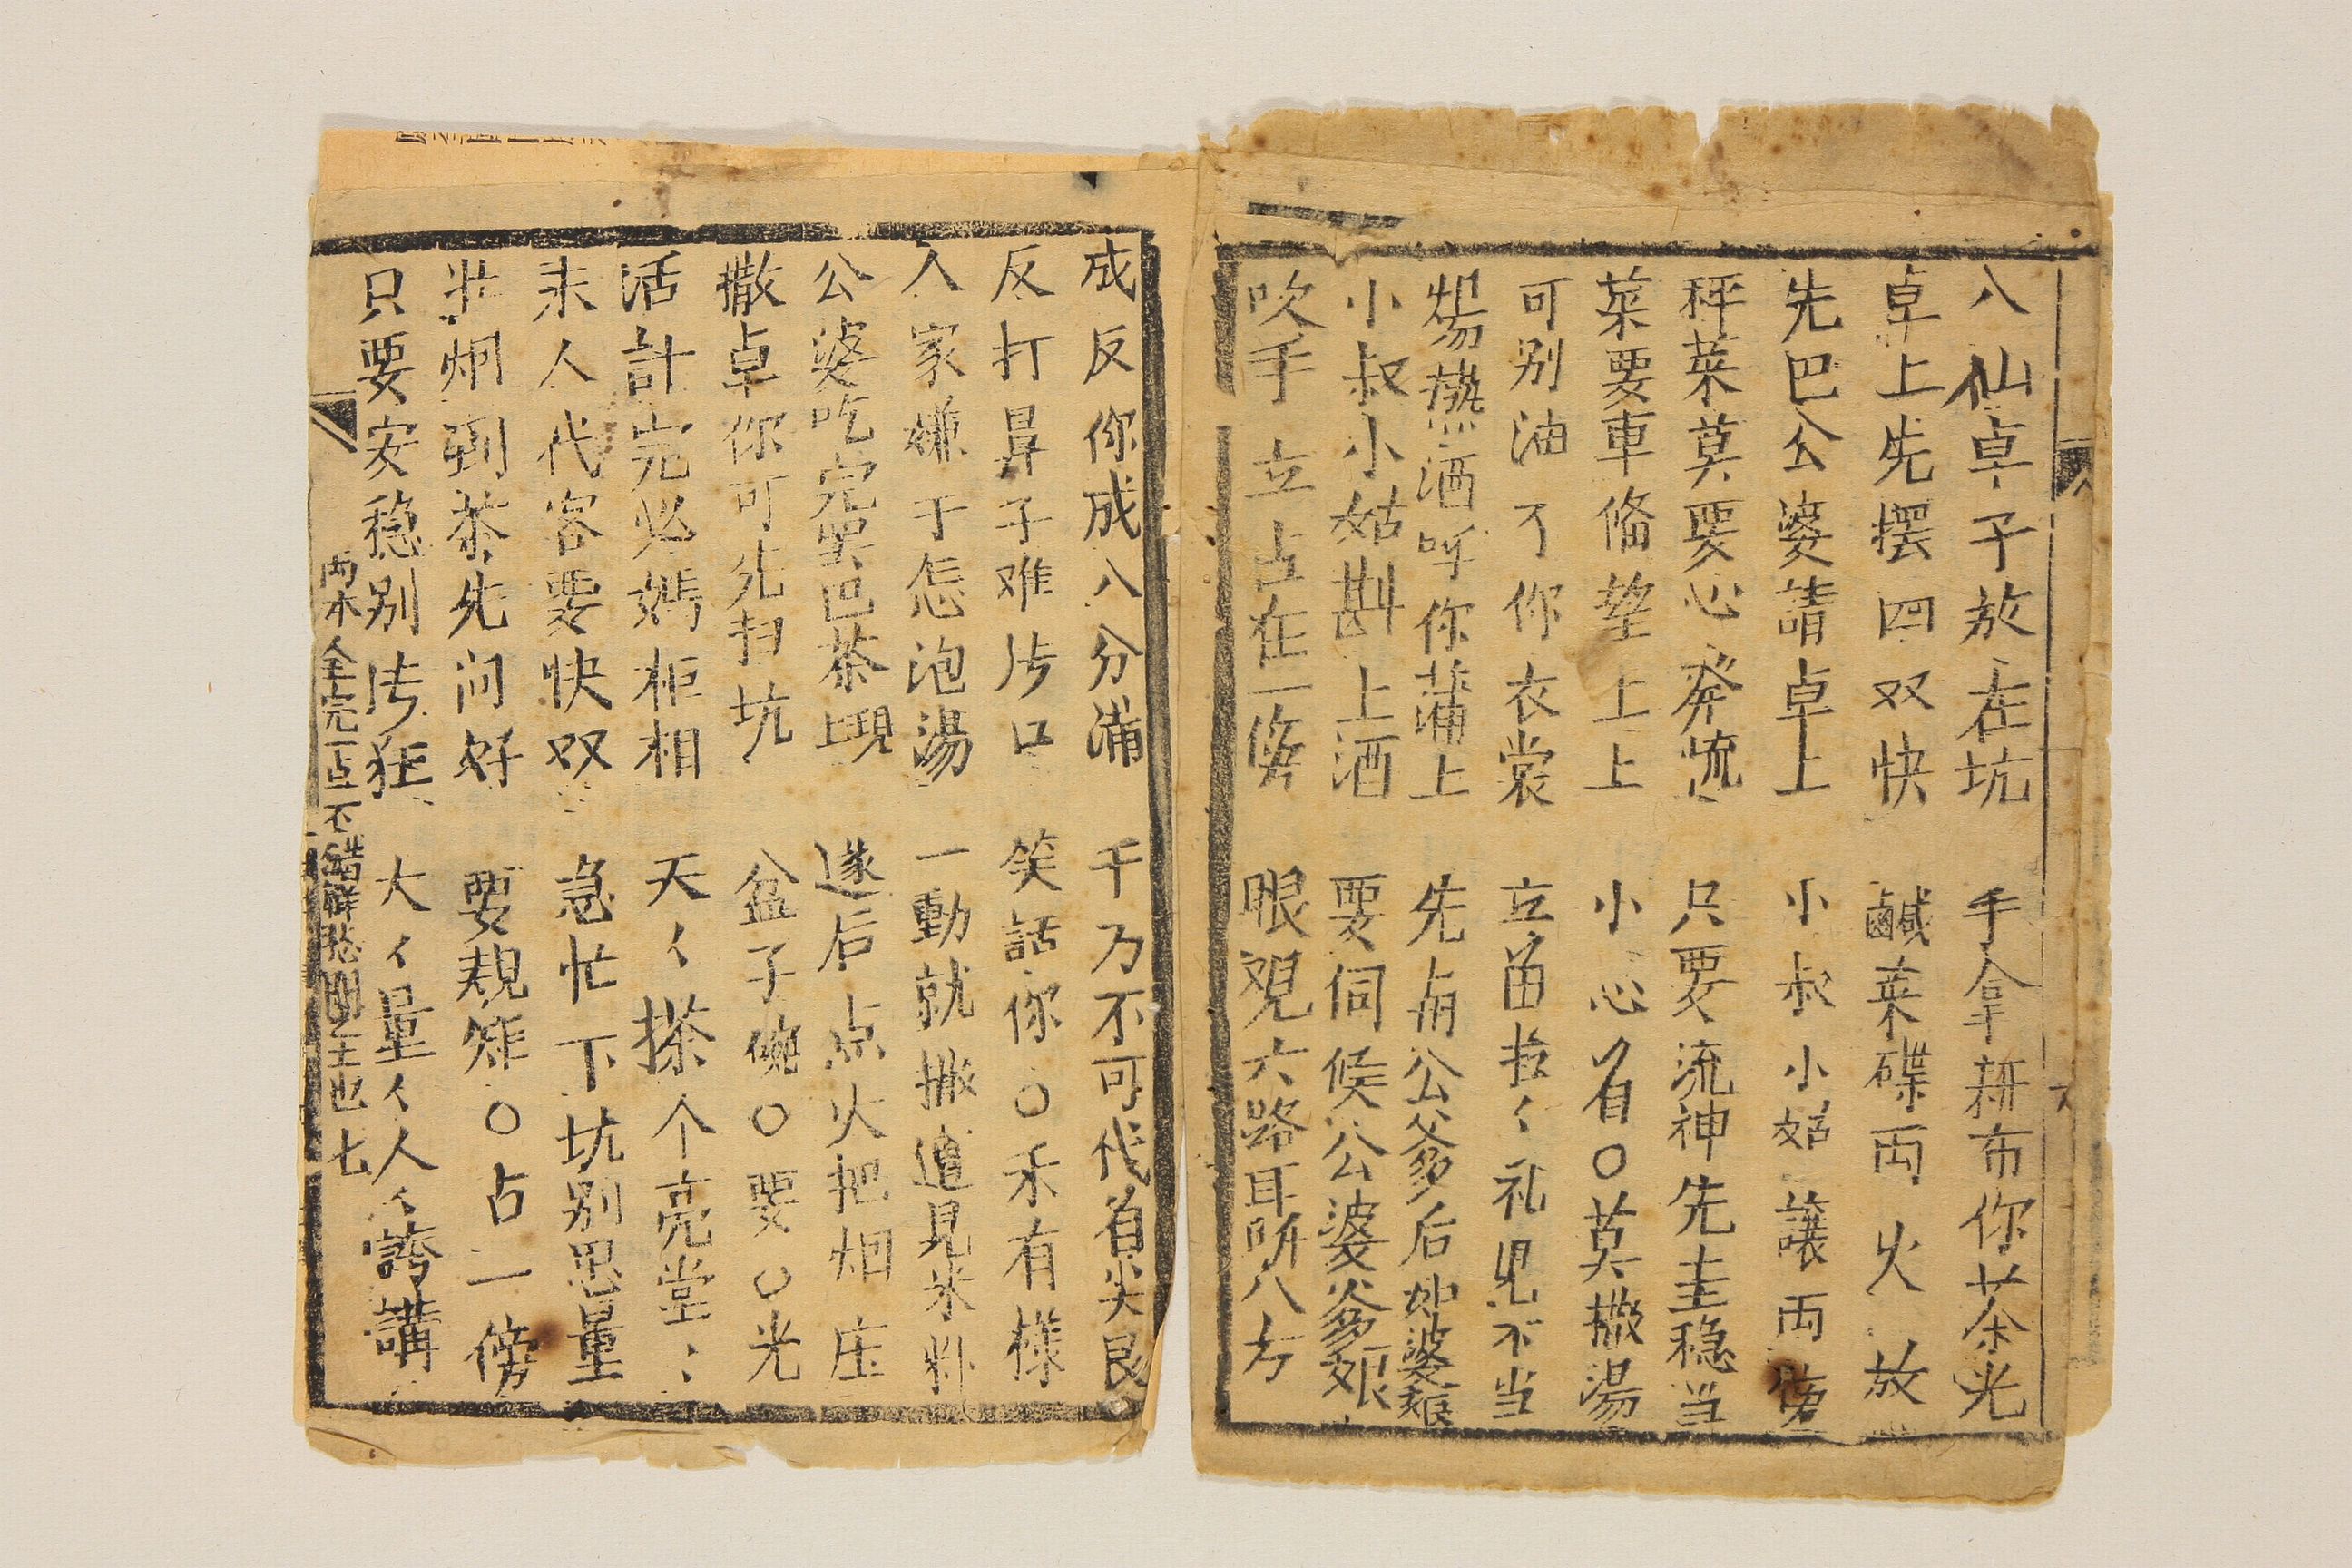 八仙卓子放在坑 手拿新布你茶光
卓上先摆四双快 鹹菜碟両火放
先巴公婆請卓上 小叔小姑讓両傍
秤菜莫要心発慌 只要流神先圭稳当
菜要車俻望上上 小心肴○莫撒湯
可别油了你衣裳 立苗拉〻礼児不当
燙热酒呼你蒲上 先有公爹后如婆娘
小叔小姑斟上酒 要伺候公婆爹娘
吹手立占在一傍 眼观六路耳听八方
成反你成八分浦 千乃不可代食尖良
反打鼻子难片口 笑話你○禾有様
人家嫌于怎泡湯 一動就撒遭見米料
公婆吃完巴茶現上 遂后点火把烟庄
撒卓你可先扫坑 盆子碗○要○光
活計完必嫣柜相 天〻搽个亮堂〻
来人代客要快双 急忙下坑别思量
壮烟到茶先问好 要規矩○占一傍
只要安稳别片狂 大〻量〻人〻誇講
両本全完一点不錯 七